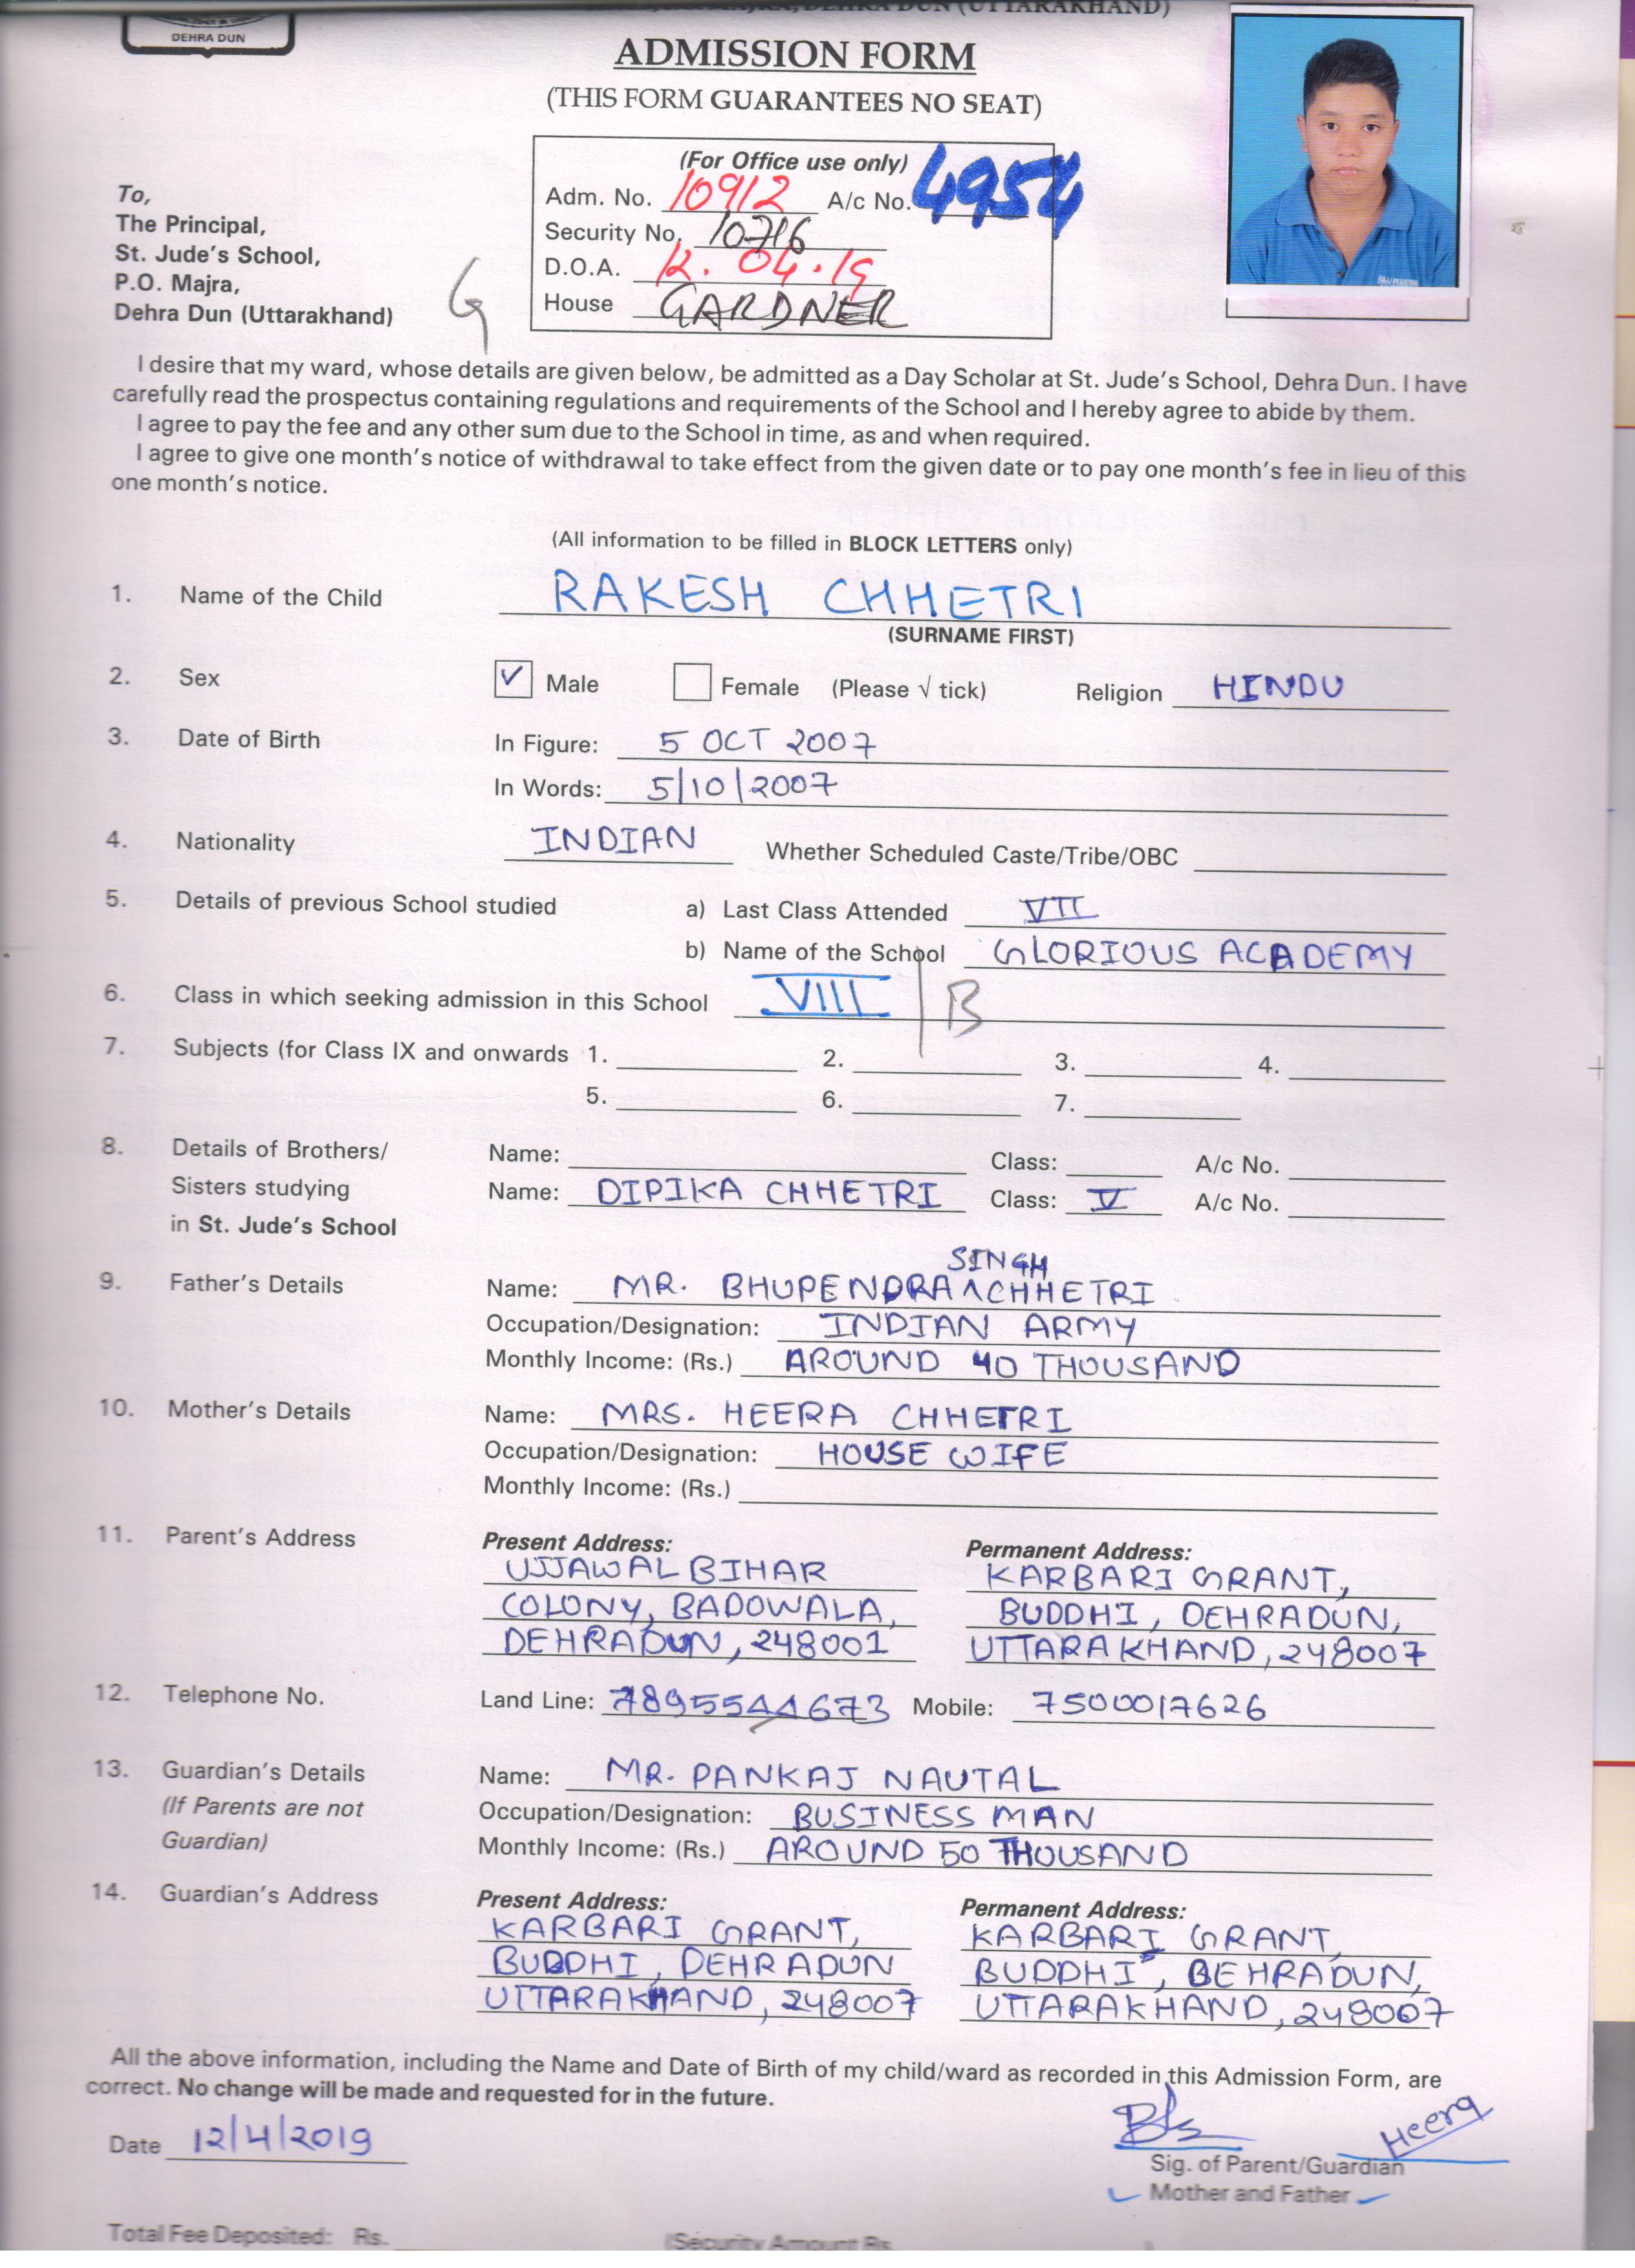 DEHRA DUN (UTTARAKHAND)
DEHRA DUN
ADMISSION FORM
(THIS FORM GUARANTEES NO SEAT)
(For Office use only)
Adm. No. 10912 A/c No. 4954
Security No. 10716
D.O.A. 12.04.19
House GARDNER
To,
The Principal,
St. Jude's School,
P.O. Majra,
Dehra Dun (Uttarakhand)
G
I desire that my ward, whose details are given below, be admitted as a Day Scholar at St. Jude's School, Dehra Dun. I have
carefully read the prospectus containing regulations and requirements of the School and I hereby agree to abide by them.
I agree to pay the fee and any other sum due to the School in time, as and when required.
I agree to give one month's notice of withdrawal to take effect from the given date or to pay one month's fee in lieu of this
one month's notice.
(All information to be filled in BLOCK LETTERS only)
1. Name of the Child RAKESH CHHETRI
(SURNAME FIRST)
2. Sex ✓ Male Female (Please √ tick) Religion HINDU
3. Date of Birth In Figure: 5 OCT 2007
In Words: 5/10/2007
4. Nationality INDIAN Whether Scheduled Caste/Tribe/OBC
5. Details of previous School studied a) Last Class Attended VII
b) Name of the School GLORIOUS ACADEMY
6. Class in which seeking admission in this School VIII B
7. Subjects (for Class IX and onwards 1. 2. 3. 4.
5. 6. 7.
8. Details of Brothers/ Name: Class: A/c No.
Sisters studying Name: DIPIKA CHHETRI Class: V A/c No.
in St. Jude's School
SINGH
9. Father's Details Name: MR. BHUPENDRA ^ CHHETRI
Occupation/Designation: INDIAN ARMY
Monthly Income: (Rs.) AROUND 40 THOUSAND
10. Mother's Details Name: MRS. HEERA CHHETRI
Occupation/Designation: HOUSE WIFE
Monthly Income: (Rs.)
11. Parent's Address Present Address: Permanent Address:
UJJAWAL BIHAR KARBARI GRANT,
COLONY, BADOWALA, BUDDHI, DEHRADUN,
DEHRADUN, 248001 UTTARAKHAND, 248007
12. Telephone No. Land Line: 7895544673 Mobile: 7500017626
13. Guardian's Details Name: MR. PANKAJ NAUTAL
(If Parents are not Occupation/Designation: BUSINESS MAN
Guardian) Monthly Income: (Rs.) AROUND 50 THOUSAND
14. Guardian's Address Present Address: Permanent Address:
KARBARI GRANT, KARBARI GRANT,
BUDDHI, DEHRADUN BUDDHI, DEHRADUN,
UTTARAKHAND, 248007 UTTARAKHAND, 248007
All the above information, including the Name and Date of Birth of my child/ward as recorded in this Admission Form, are
correct. No change will be made and requested for in the future.
Date 12/4/2019 Heera
Sig. of Parent/Guardian
Mother and Father
Total Fee Deposited: Rs. (Security Amount Rs.